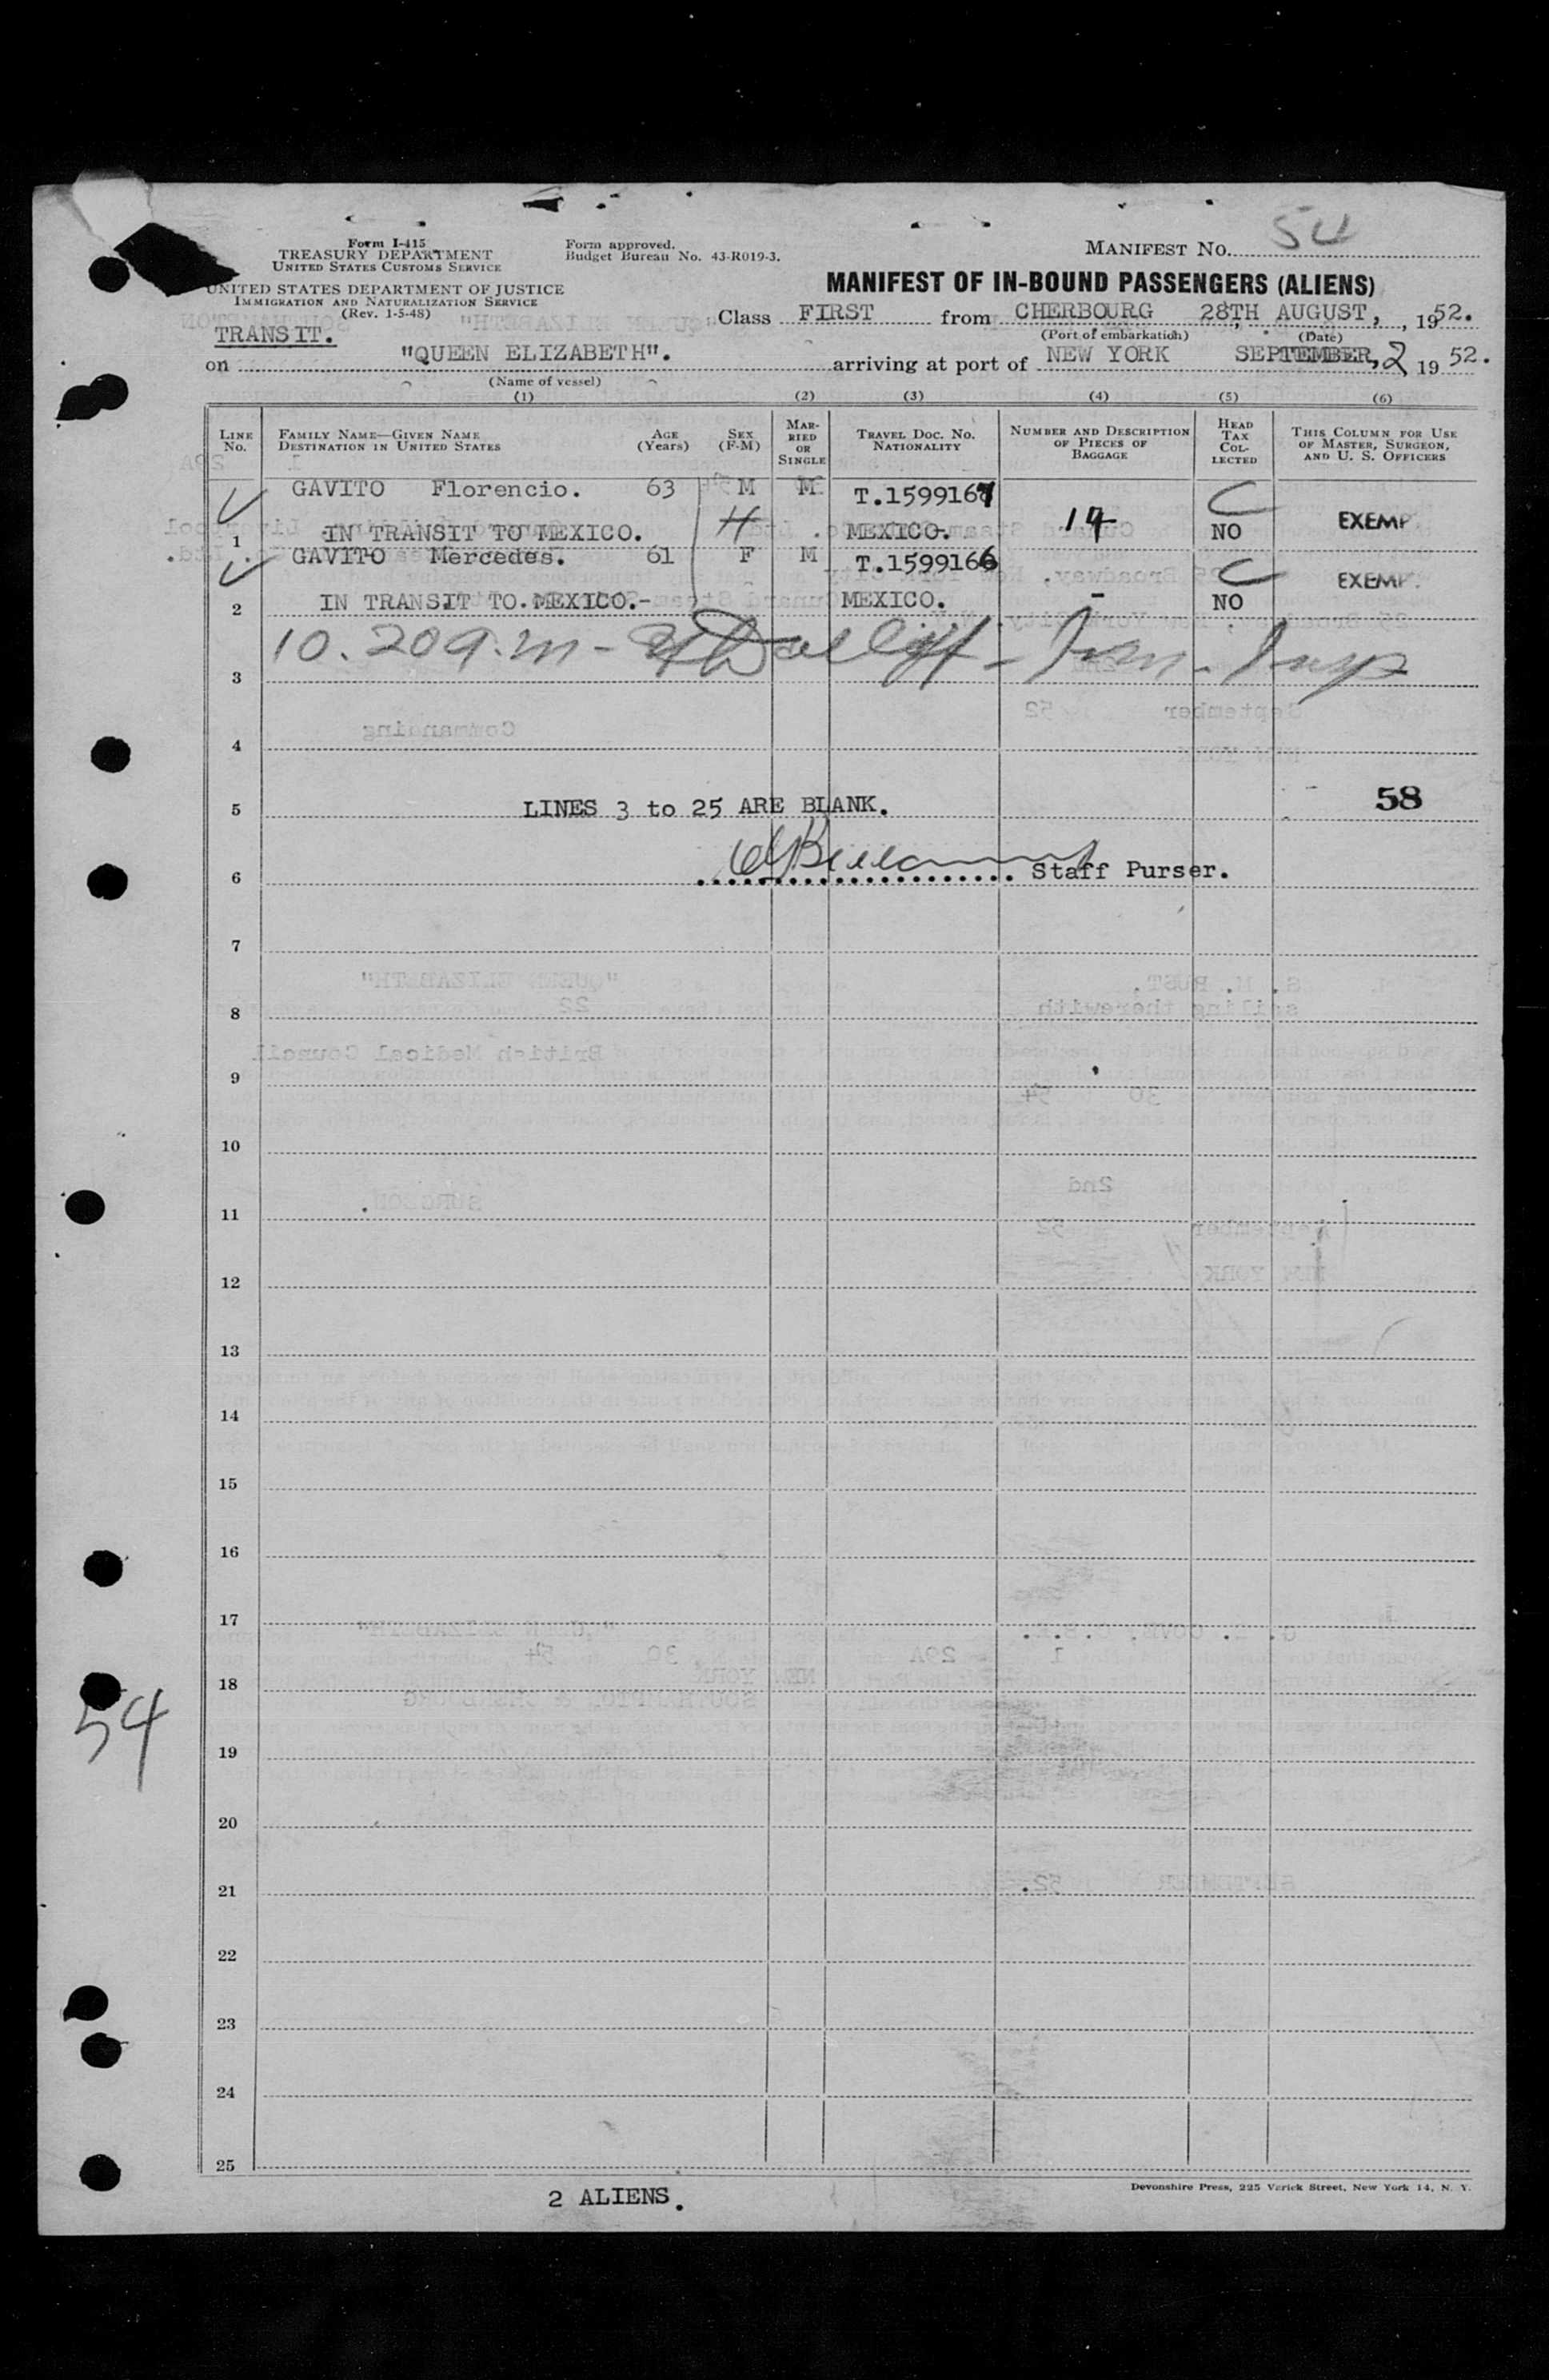 54
Form I-415
TREASURY DEPARTMENT
UNITED STATES CUSTOMS SERVICE
UNITED STATES DEPARTMENT OF JUSTICE
IMMIGRATION AND NATURALIZATION SERVICE
(Rev. 1-5-48)
Form approved.
Budget Bureau No. 43-R019-3.
MANIFEST NO.
MANIFEST OF IN-BOUND PASSENGERS (ALIENS)
Class FIRST from CHERBOURG 28TH AUGUST, , 1952.
(Port of embarkation) (Date)
TRANSIT.
on "QUEEN ELIZABETH". arriving at port of NEW YORK SEPTEMBER, 2 19 52.
(Name of vessel)
(1) (2) (3) (4) (5) (6)
LINE No. FAMILY NAME—GIVEN NAME DESTINATION IN UNITED STATES AGE (Years) SEX (F-M) MARRIED OR SINGLE TRAVEL DOC. NO. NATIONALITY NUMBER AND DESCRIPTION OF PIECES OF BAGGAGE HEAD TAX COLLECTED THIS COLUMN FOR USE OF MASTER, SURGEON, AND U. S. OFFICERS
GAVITO Florencio. 63 M M T.1599167 C
1 IN TRANSIT TO MEXICO. H MEXICO. 14 NO EXEMP
GAVITO Mercedes. 61 F M T.1599166 C EXEMP.
2 IN TRANSIT TO.MEXICO.- MEXICO. - NO
10.20 a.m - Imm. Insp
3
4
5 LINES 3 to 25 ARE BLANK. 58
6 Staff Purser.
7
8
9
10
11
12
13
14
15
16
17
18
54
19
20
21
22
23
24
25
2 ALIENS.
Devonshire Press, 225 Varick Street, New York 14, N. Y.